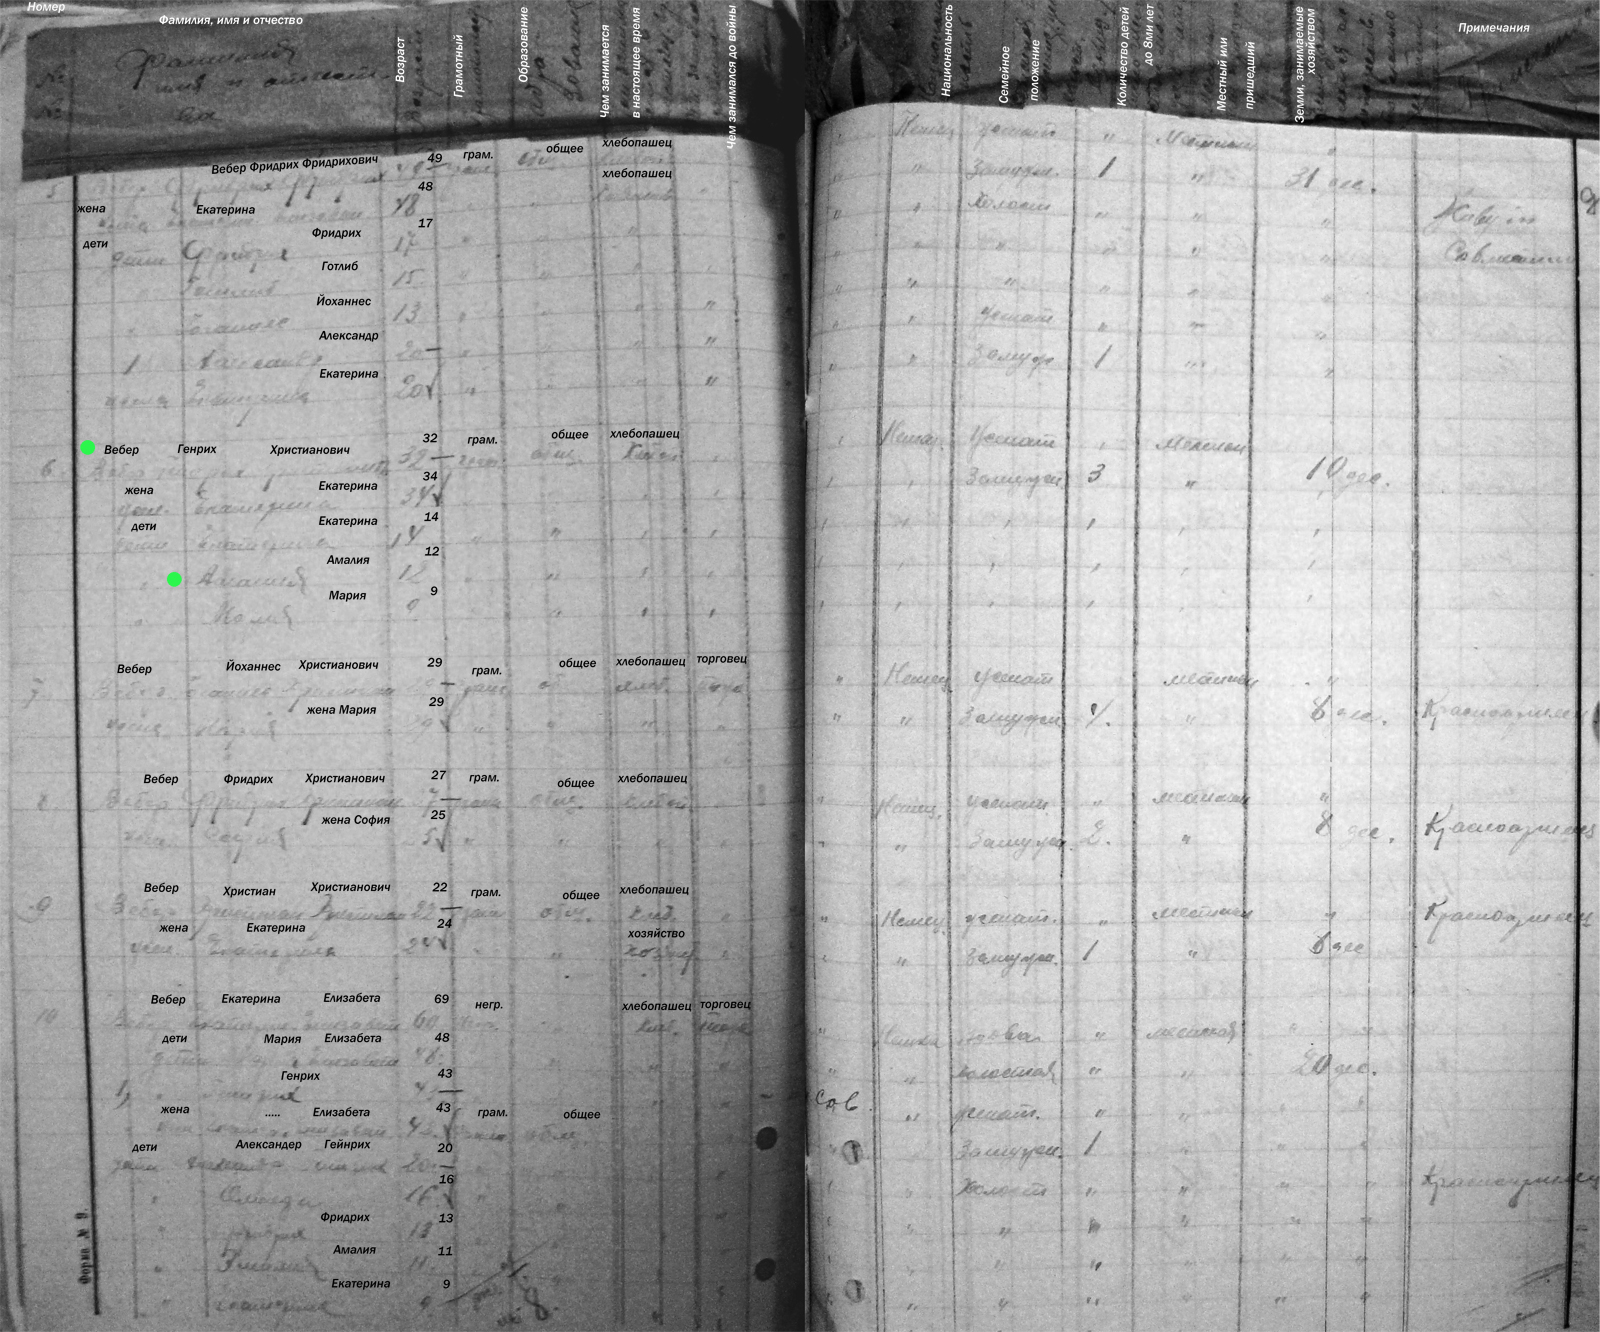 Номер
Фамилия, имя и отчество
Возраст
Грамотный
Образование
Чем занимается
в настоящее время
Чем занимался до войны
Национальность
Семейное
положение
Количество детей
до 8ми лет
Местный или
пришедший
Земли, занимаемые
хозяйством
Примечания
Вебер Фридрих Фридрихович 49 грам. общее хлебопашец
5
48 хлебопашец
жена Екатерина
17
дети Фридрих
Готлиб
15
Йоханнес
13
Александр
20
Екатерина
20
Немец женат " Местный "
Замужн. 1 " 31 дес.
Холост
женат
Замуж 1
Вебер Генрих Христианович 32 грам. общее хлебопашец
6 Немец Женат местный
жена Екатерина 34
Замужн 3 " 10 дес.
дети Екатерина 14
Амалия 12
Мария 9
Вебер Йоханнес Христианович 29 грам. общее хлебопашец торговец
7 Немец женат местный
жена Мария 29
Замужн " 8 дес. Красноармеец
Вебер Фридрих Христианович 27 грам. общее хлебопашец
8 Немец женат местный
жена София 25
Замужн 2. " 8 дес. Красноармеец
Вебер Христиан Христианович 22 грам. общее хлебопашец
9 Немец женат. местный Красноармеец
жена Екатерина 24 хозяйство
Замужн. 1 " 6 дес
Вебер Екатерина Елизабета 69 негр. хлебопашец торговец
10 Немка вдова местная
дети Мария Елизабета 48
холостая 20 дес.
Генрих 43
Сов. женат.
жена ..... Елизабета 43 грам. общее
Замужн. 1
дети Александер Гейнрих 20
Холост Красноармеец
16
Фридрих 13
Амалия 11
Екатерина 9
Форма № 9.